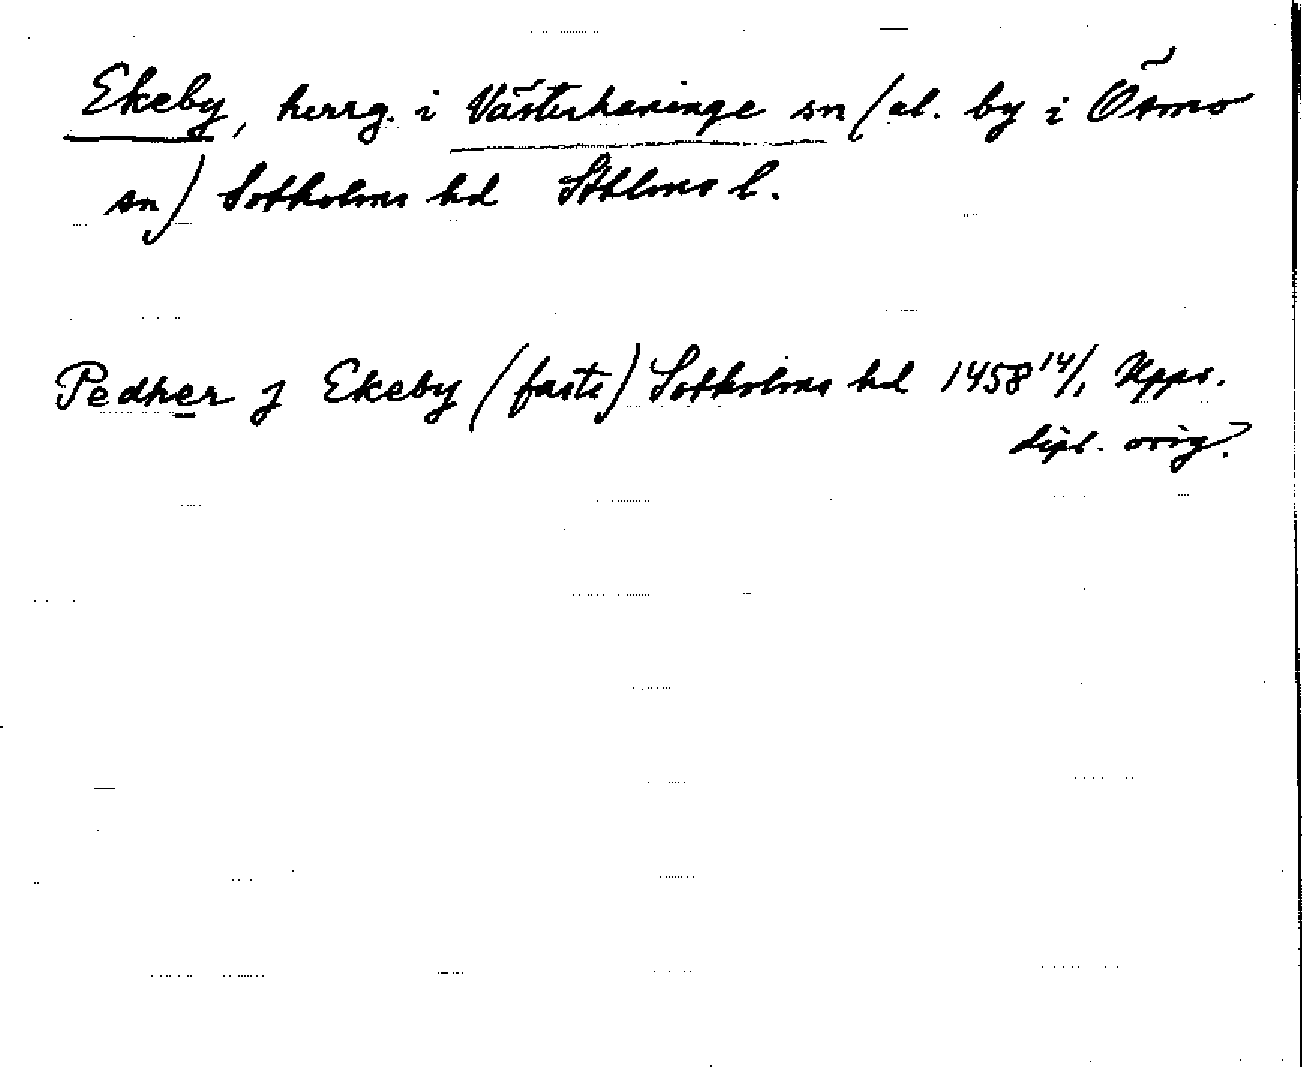 Ekeby, herrg. i Västerhaninge sn (el. by i Ösmo
sn) Sotholms hd Sthlms l.
Pedher j Ekeby (faste) Sotholms hd 1458 14/1 Upps.
dipl. orig.?